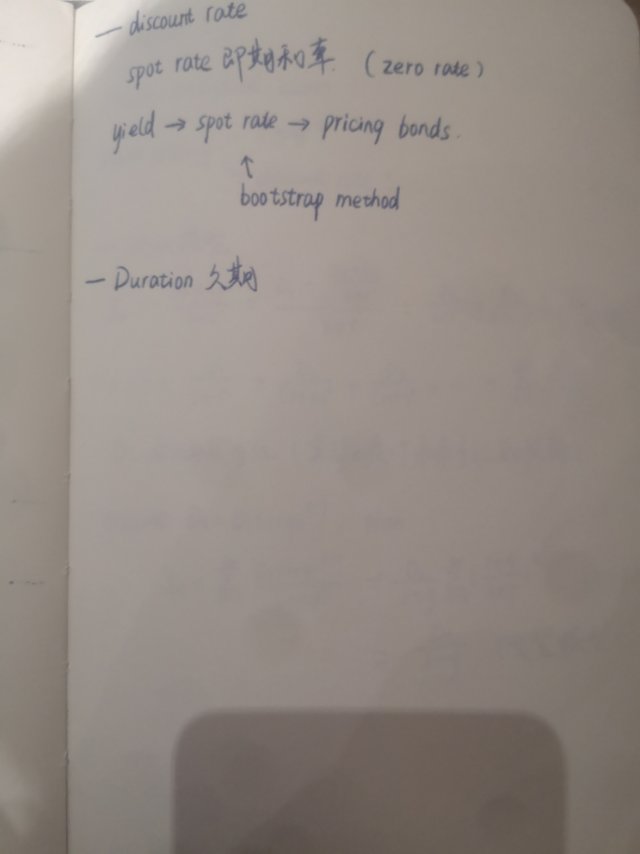 — discount rate
spot rate 即期利率 (zero rate)
yield → spot rate → pricing bonds.
↑
bootstrap method
— Duration 久期